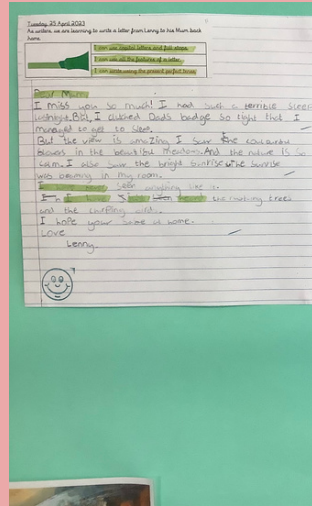 Tuesday 25 April 2023
As writers, we are learning to write a letter from Lenny to his Mum back
home.
I can use capital letters and full stops.
I can use all the features of a letter.
I can write using the present perfect tense.
Dear Mum
I miss you so much! I had such a terrible sleep
lastnight. But, I cluched Dad's badge so tight that I
managed to get to sleep.
But the view is amazing I saw the
in the beautiful meadows. And the nature is so
calm. I also saw the bright sunrise the sunrise
was beaming in my room.
I seen anything like it.
the trees
and the chirping birds.
I hope your safe at home.
Love
Lenny